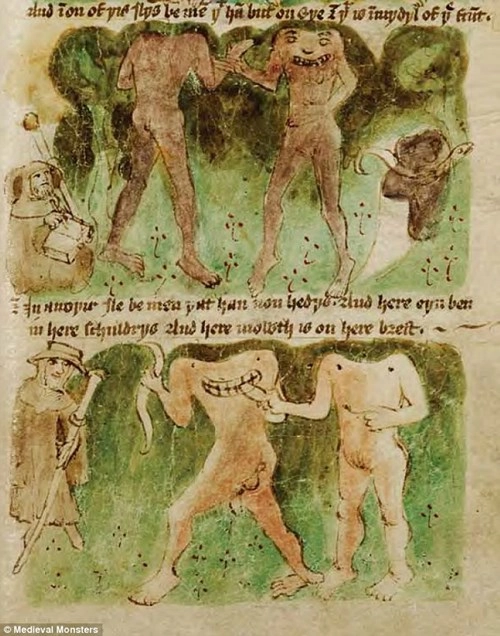 And of yis ylys be mē yᵗ hā but on eye yᵗ is in myydyl of yᵉ
In anoyir yle be men yat han non hedys. And here eyn ben
in here schuldrys And here mowth is on here brest.
© Medieval Monsters